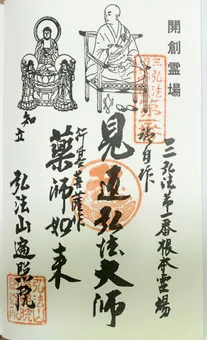 開創霊場
三弘法第一番根本霊場
三弘法第一
御自作
見返弘法大師
行基菩薩作
薬師如来
知立
弘法山遍照院